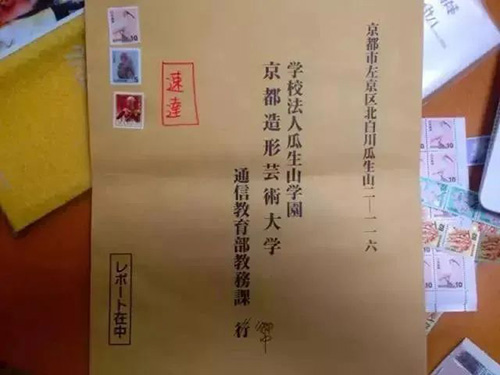 京都市左京区北白川瓜生山二ー一一六
学校法人瓜生山学園
京都造形芸術大学
通信教育部教務課 行
御中
速達
レポート在中
10
10
10